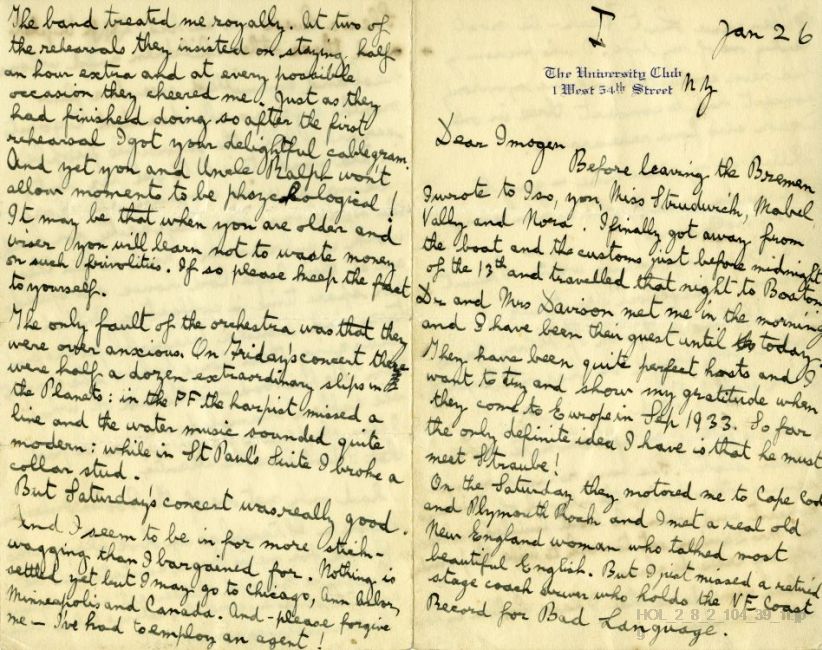 I
Jan 26
The University Club
1 West 54th Street
NY
Dear Imogen
Before leaving the Bremen
I wrote to Iso, you, Miss Strudwick, Mabel,
Vally and Nora. I finally got away from
the boat and the customs just before midnight
of the 13th and travelled that night to Boston.
Dr and Mrs Davison met me in the morning
and I have been their guest until today.
They have been quite perfect hosts and I
want to try and show my gratitude when
they come to Europe in Sep 1933. So far
the only definite idea I have is that he must
meet Straube!
On the Saturday they motored me to Cape Cod
and Plymouth Rock and I met a real old
New England woman who talked most
beautiful English. But I just missed a retired
stage coach driver who holds the Coast
Record for Bad Language.
The band treated me royally. At two of
the rehearsals they insisted on staying half
an hour extra and at every possible
occasion they cheered me. Just as they
had finished doing so after the first
rehearsal I got your delightful cablegram.
And yet you and Uncle Ralph won't
allow moments to be
It may be that when you are older and
wiser you will learn not to waste money
on such frivolities. If so please keep the fact
to yourself.
The only fault of the orchestra was that they
were over anxious. On Friday's concert there
were half a dozen extraordinary slips in
the Planets: in the PF the harpist missed a
line and the water music sounded quite
modern: while in St Paul's Suite I broke a
collar stud.
But Saturday's concert was really good.
And I seem to be in for more stick-
wagging than I bargained for. Nothing is
settled yet but I may go to Chicago, Ann Arbor,
Minneapolis and Canada. And - please forgive
me - I've had to employ an agent!